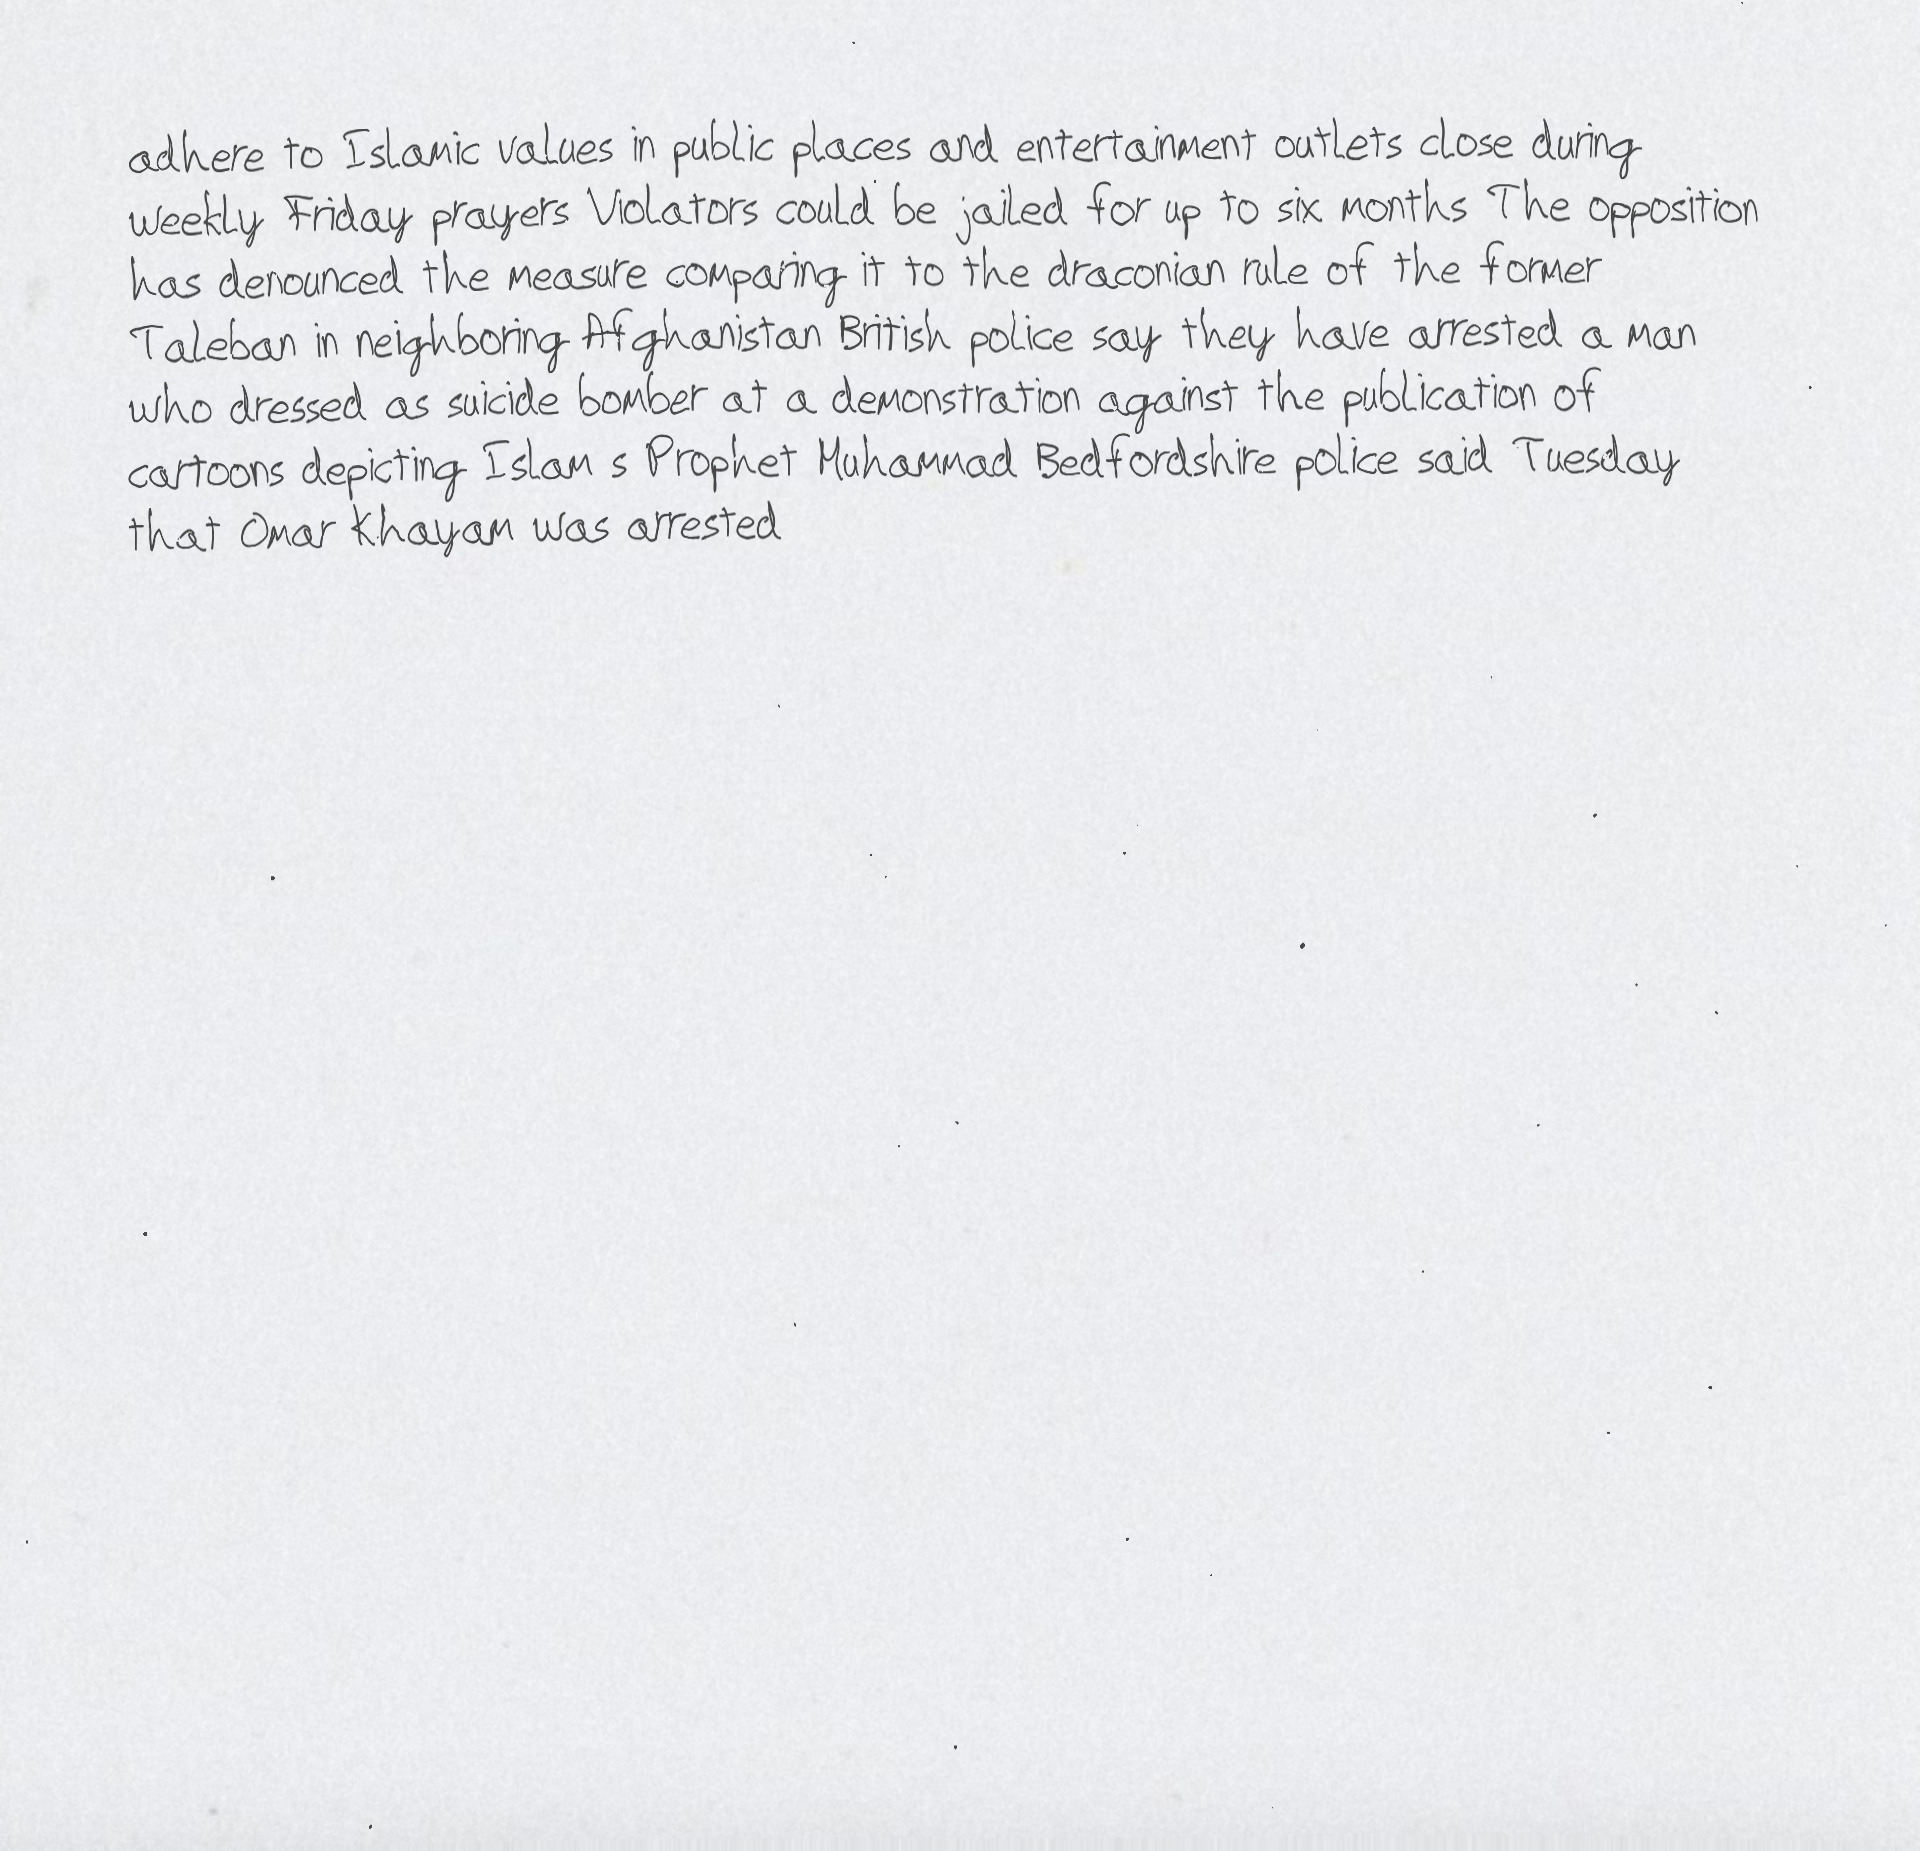 adhere to Islamic values in public places and entertainment outlets close during
weekly Friday prayers Violators could be jailed for up to six months The opposition
has denounced the measure comparing it to the draconian rule of the former
Taleban in neighboring Afghanistan British police say they have arrested a man
who dressed as suicide bomber at a demonstration against the publication of
cartoons depicting Islam s Prophet Muhammad Bedfordshire police said Tuesday
that Omar Khayam was arrested